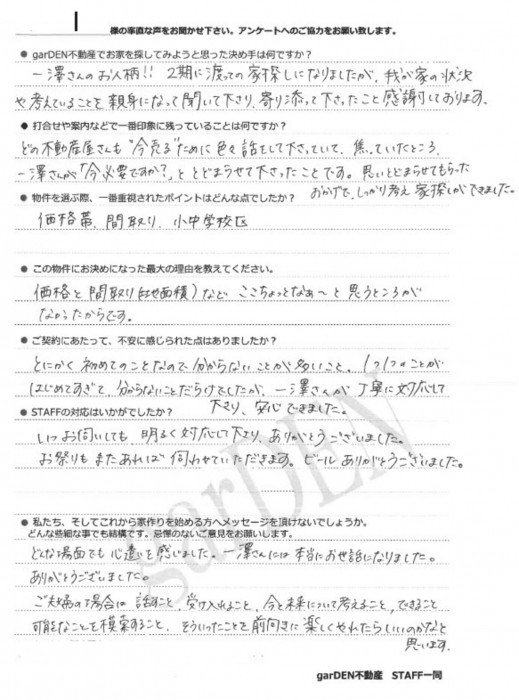 様の率直な声をお聞かせ下さい。アンケートへのご協力をお願い致します。
● garDEN不動産でお家を探してみようと思った決め手は何ですか?
一澤さんのお人柄!! 2期に渡っての家探しになりましたが、我が家の状況
や考えていることを親身になって聞いて下さり、寄り添って下さったこと感謝しております。
● 打合せや案内などで一番印象に残っていることは何ですか?
どの不動産屋さんも"今売る"ために色々話をして下さっていて、焦っていたところ、
一澤さんが「今必要ですか?」ととどまらせて下さったことです。思いとどまらせてもらった
おかげで、しっかり考え家探しができました。
● 物件を選ぶ際、一番重視されたポイントはどんな点でしたか?
価格帯、間取り、小中学校区
● この物件にお決めになった最大の理由を教えてください。
価格と間取り(土地面積)など ここちょっとなぁ〜と思うところが
なかったからです。
● ご契約にあたって、不安に感じられた点はありましたか?
とにかく初めてのことなので分からないことが多いこと。1つ1つのことが
はじめてすぎて、分からないことだらけでしたが、一澤さんが丁寧に対応して
下さり、安心できました。
● STAFFの対応はいかがでしたか?
いつお伺いしても、明るく対応して下さり、ありがとうございました。
お祭りもまたあれば伺わせていただきます。ビールありがとうございました。
● 私たち、そしてこれから家作りを始める方へメッセージを頂けないでしょうか。
どんな些細な事でも結構です。忌憚のないご意見をお願いします。
どんな場面でも心遣いを感じました。一澤さんには本当にお世話になりました。
ありがとうございました。
ご夫婦の場合は話すこと、受け入れること、今と未来について考えること、できること
可能なことを模索すること、そういったことを前向きに楽しくやれたらいいのかなと
思います。
garDEN不動産 STAFF一同
garDEN